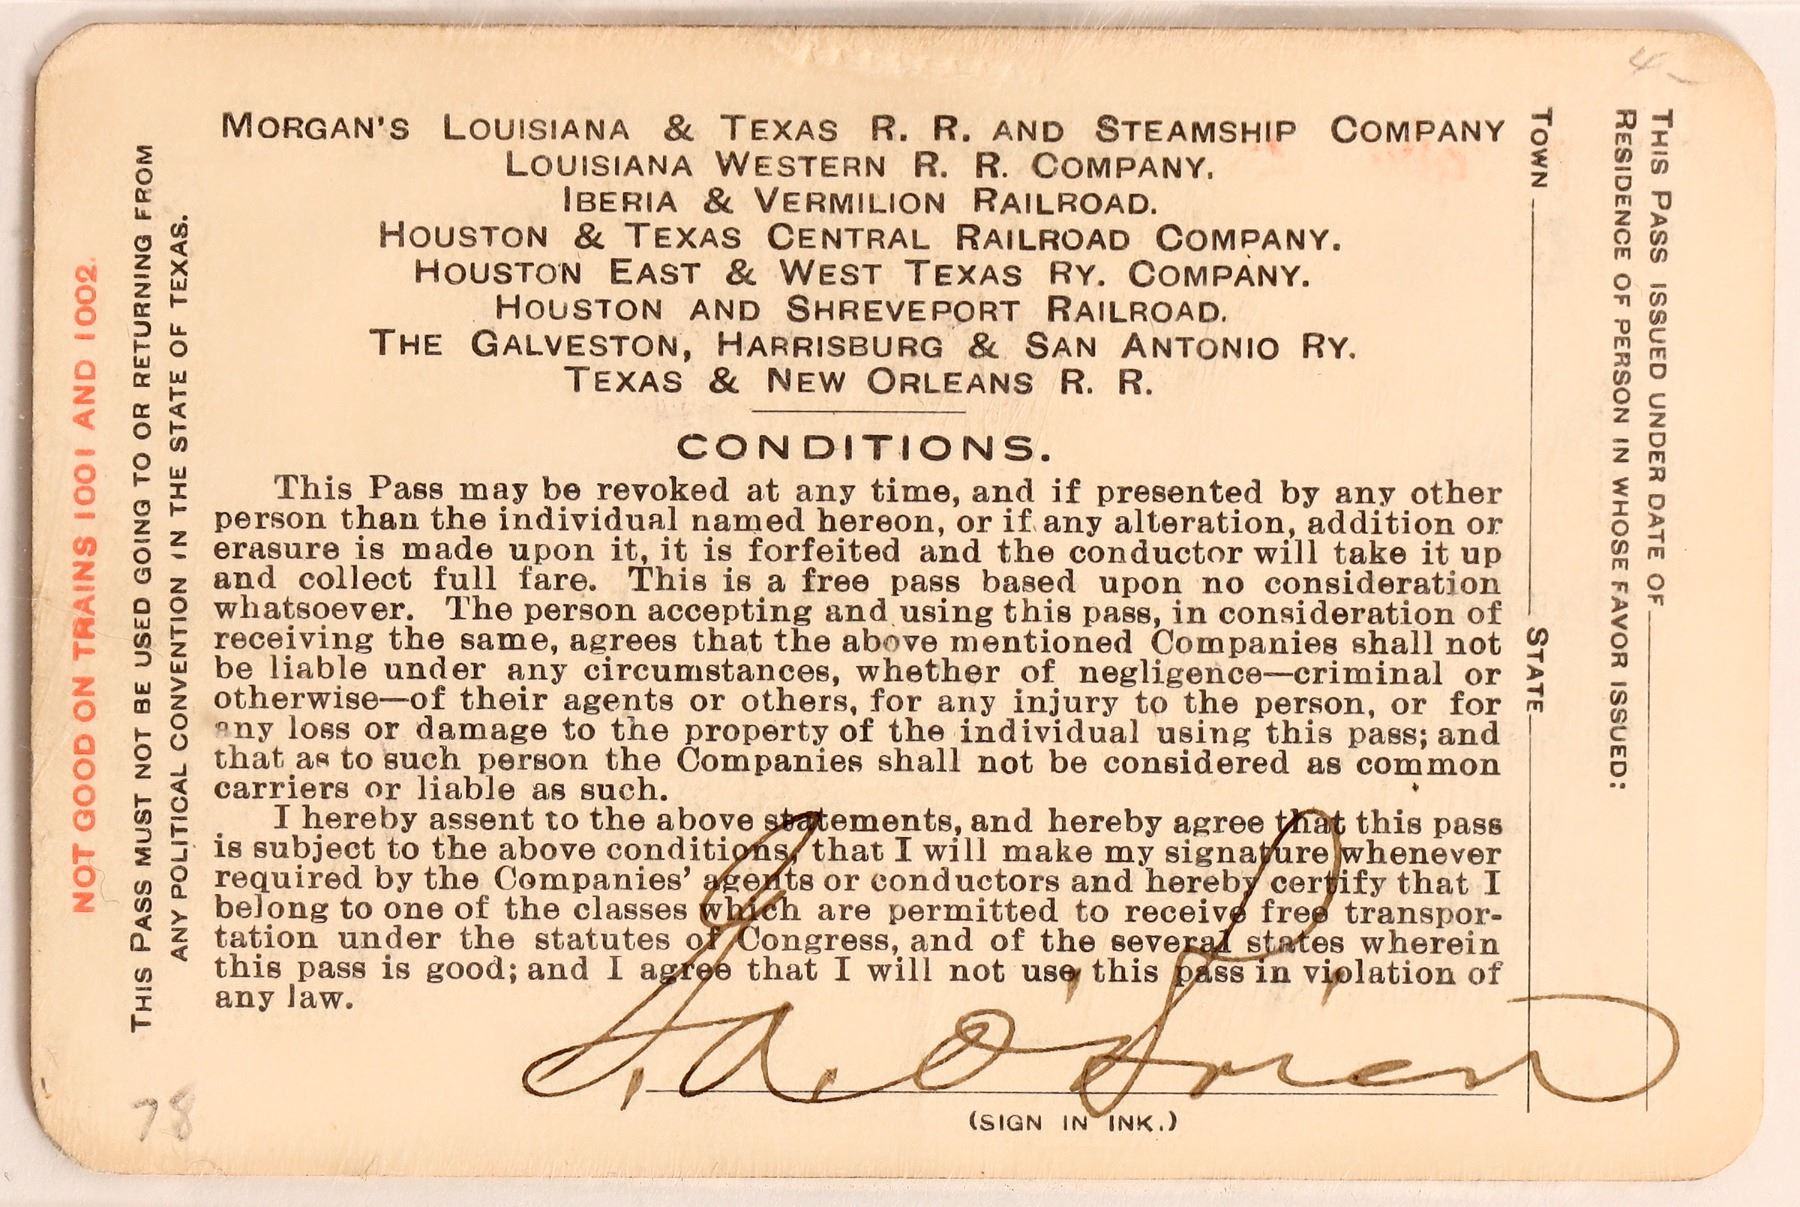 4-
MORGAN'S LOUISIANA & TEXAS R. R. AND STEAMSHIP COMPANY
LOUISIANA WESTERN R. R. COMPANY.
IBERIA & VERMILION RAILROAD.
HOUSTON & TEXAS CENTRAL RAILROAD COMPANY.
HOUSTON EAST & WEST TEXAS RY. COMPANY.
HOUSTON AND SHREVEPORT RAILROAD.
THE GALVESTON, HARRISBURG & SAN ANTONIO RY.
TEXAS & NEW ORLEANS R. R.
CONDITIONS.
This Pass may be revoked at any time, and if presented by any other
person than the individual named hereon, or if any alteration, addition or
erasure is made upon it, it is forfeited and the conductor will take it up
and collect full fare. This is a free pass based upon no consideration
whatsoever. The person accepting and using this pass, in consideration of
receiving the same, agrees that the above mentioned Companies shall not
be liable under any circumstances, whether of negligence—criminal or
otherwise—of their agents or others, for any injury to the person, or for
any loss or damage to the property of the individual using this pass; and
that as to such person the Companies shall not be considered as common
carriers or liable as such.
I hereby assent to the above statements, and hereby agree that this pass
is subject to the above conditions, that I will make my signature whenever
required by the Companies' agents or conductors and hereby certify that I
belong to one of the classes which are permitted to receive free transpor-
tation under the statutes of Congress, and of the several states wherein
this pass is good; and I agree that I will not use this pass in violation of
any law.
O'Brien
(SIGN IN INK.)
NOT GOOD ON TRAINS 1001 AND 1002.
THIS PASS MUST NOT BE USED GOING TO OR RETURNING FROM
ANY POLITICAL CONVENTION IN THE STATE OF TEXAS.
78
THIS PASS ISSUED UNDER DATE OF
RESIDENCE OF PERSON IN WHOSE FAVOR ISSUED:
TOWN STATE